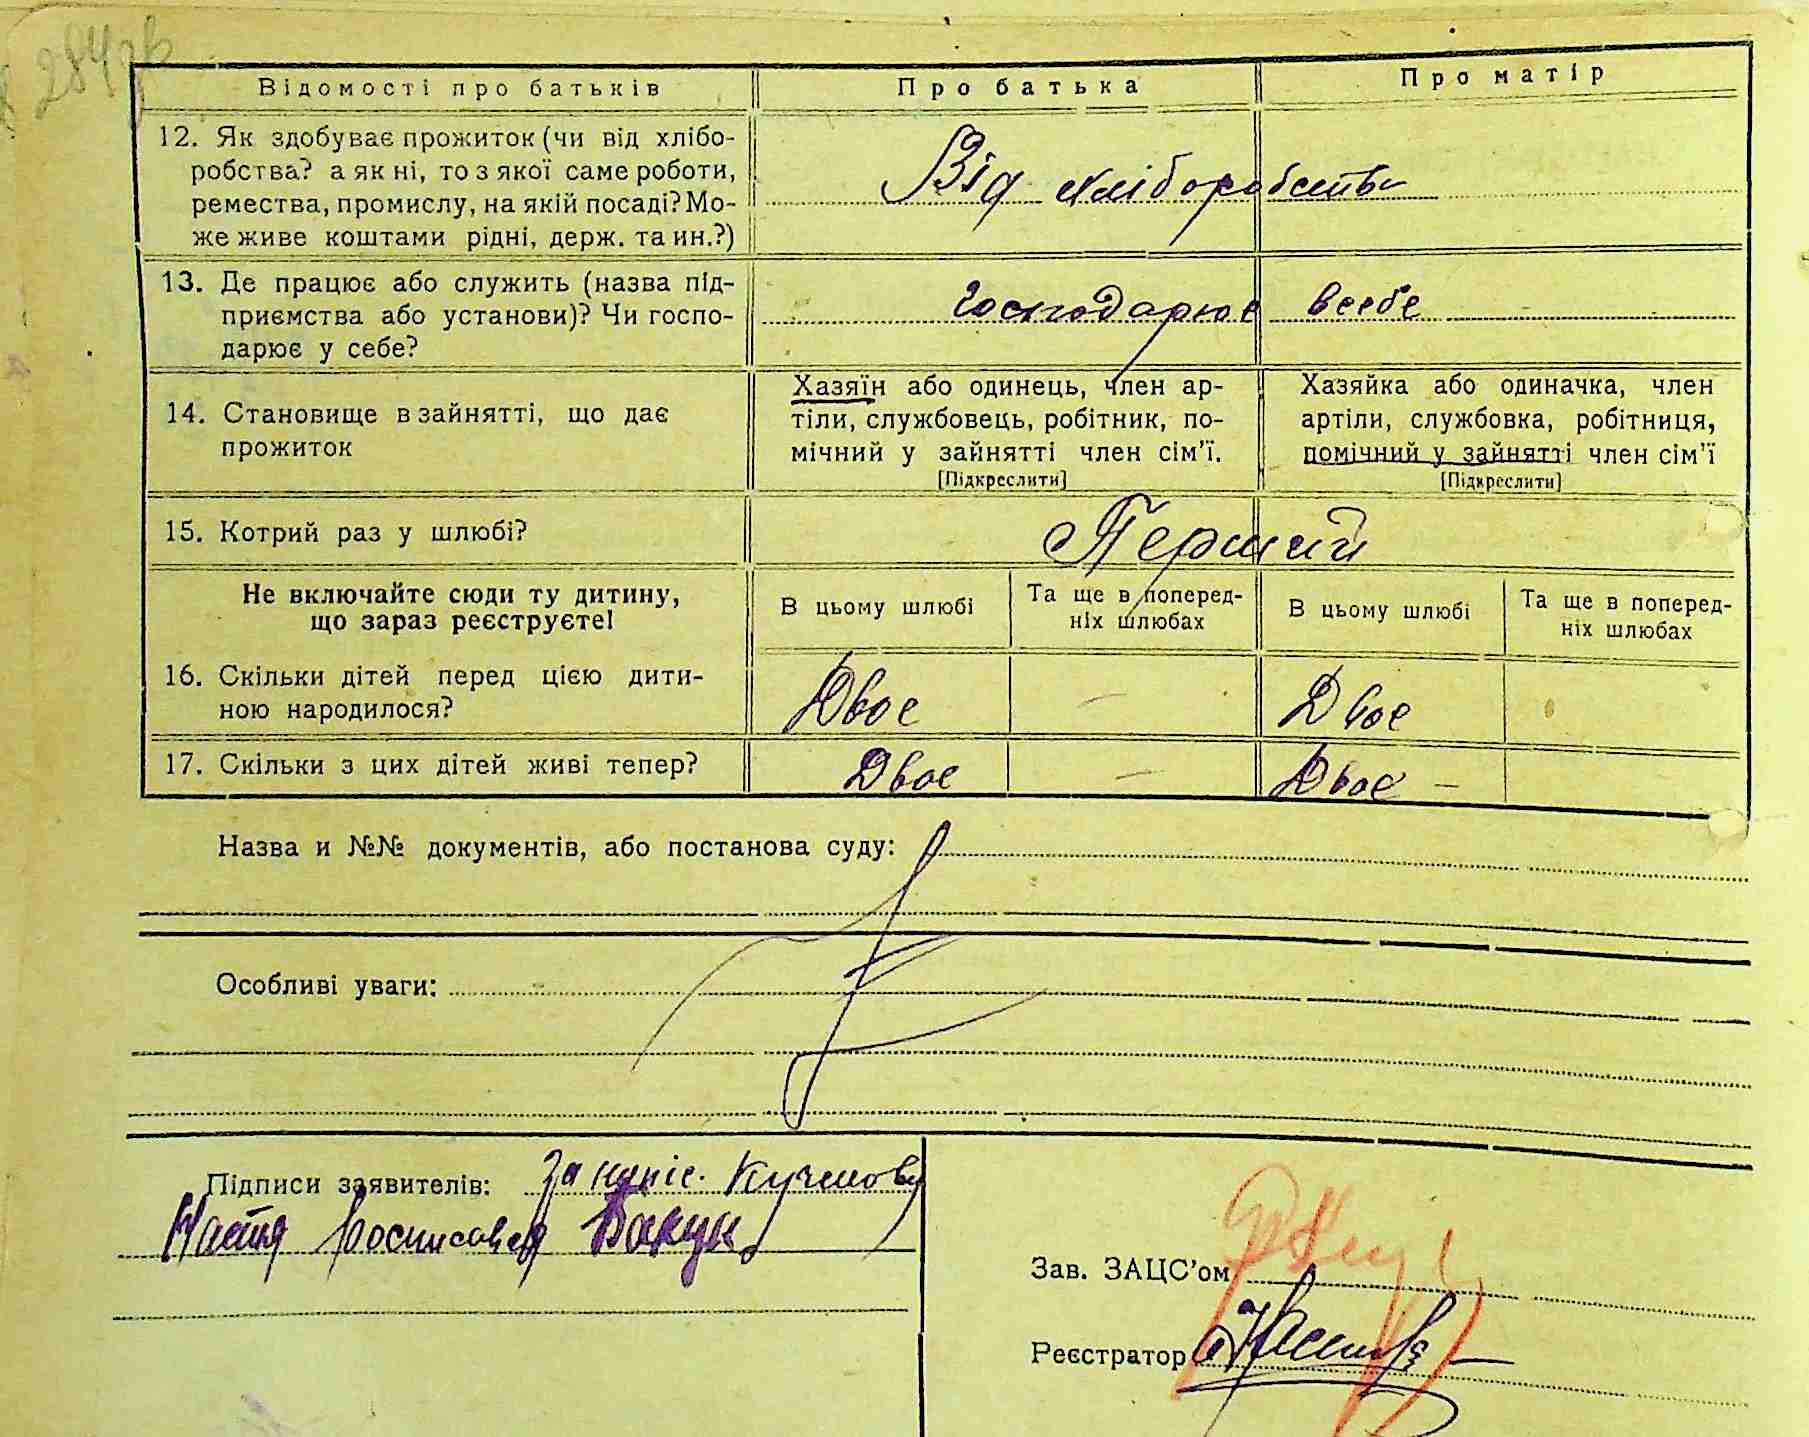 Відомості про батьків
Про батька
Про матір
12. Як здобуває прожиток (чи від хлібо-
робства? а як ні, то з якої саме роботи,
ремества, промислу, на якій посаді? Мо-
же живе коштами рідні, держ. та ин.?)
Від хліборобства
13. Де працює або служить (назва під-
приємства або установи)? Чи госпо-
дарює у себе?
господарює в себе
14. Становище в зайнятті, що дає
прожиток
Хазяїн або одинець, член ар-
тіли, службовець, робітник, по-
мічний у зайнятті член сім'ї.
[Підкреслити]
Хазяйка або одиначка, член
артіли, службовка, робітниця,
помічний у зайнятті член сім'ї
[Підкреслити]
15. Котрий раз у шлюбі?
Перший
Не включайте сюди ту дитину,
що зараз реєструєте!
В цьому шлюбі
Та ще в поперед-
ніх шлюбах
В цьому шлюбі
Та ще в поперед-
ніх шлюбах
16. Скільки дітей перед цією дити-
ною народилося?
Двоє
—
Двоє
17. Скільки з цих дітей живі тепер?
Двоє
—
Двоє —
Назва и №№ документів, або постанова суду:
Особливі уваги:
Підписи заявителів:
Настя Бакун
Зав. ЗАЦС'ом
Реєстратор